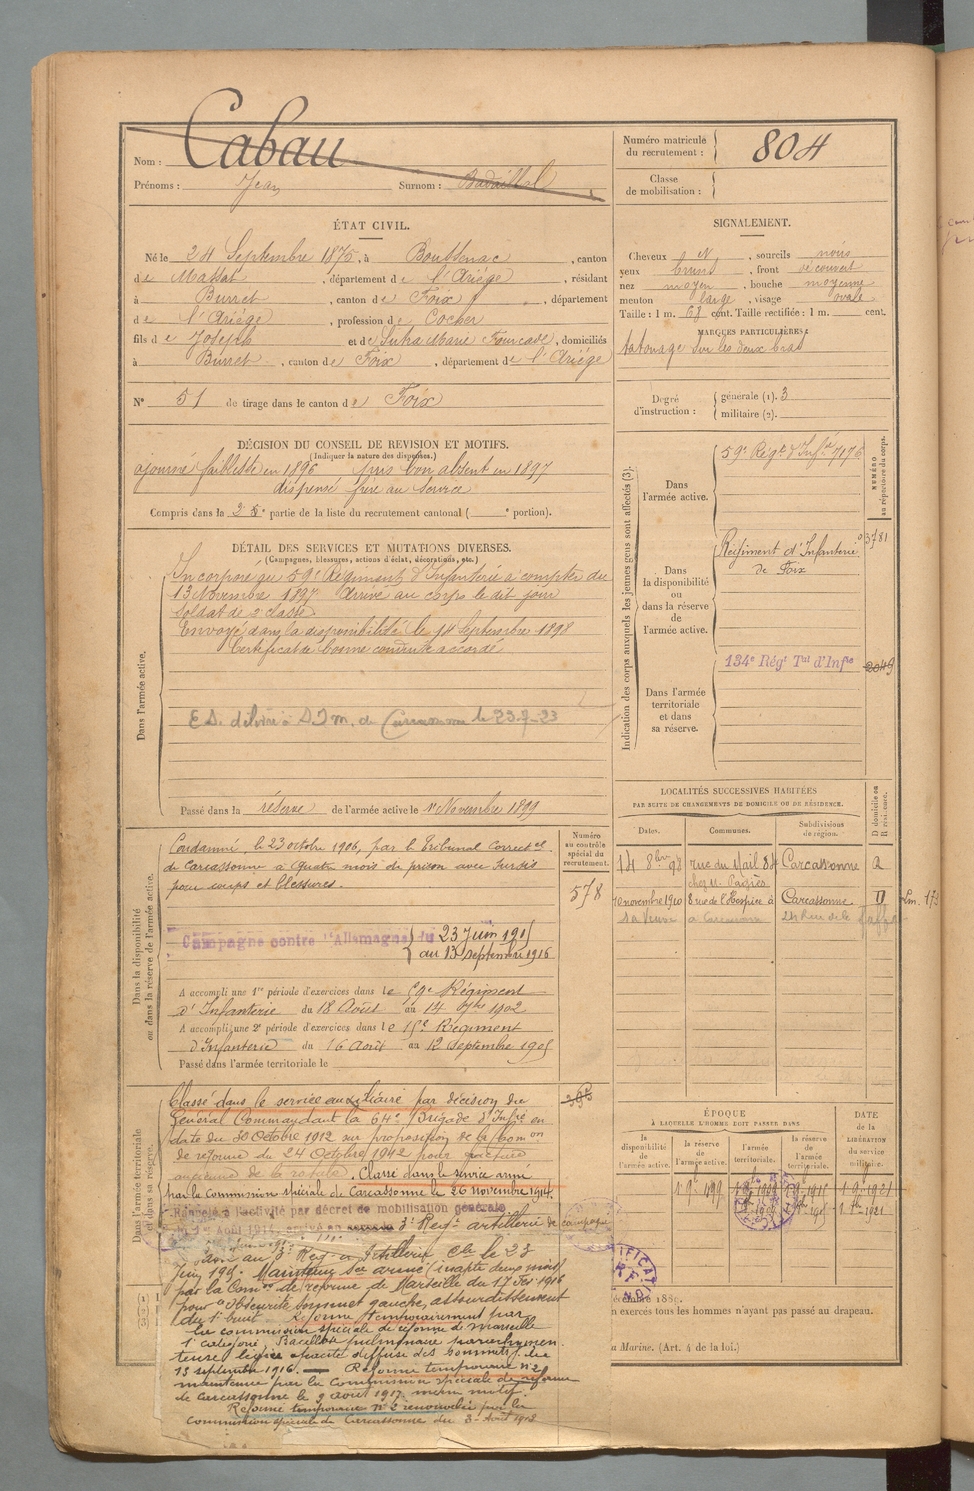 Nom : Cabau
Prénoms : Jean Surnom :
Numéro matricule du recrutement : 804
Classe de mobilisation :
ÉTAT CIVIL.
Né le 24 Septembre 1875, à Boussenac, canton
de Massat, département de l'Ariége, résidant
à Burret, canton de Foix, département
de l'Ariége, profession de Cocher
fils de Joseph et de Marie Fourcade, domiciliés
à Burret, canton de Foix, département de l'Ariége
N° 51 de tirage dans le canton de Foix
SIGNALEMENT.
Cheveux N, sourcils noirs
yeux bruns, front découvert
nez moyen, bouche moyenne
menton large, visage ovale
Taille : 1 m. 68 cent. Taille rectifiée : 1 m. cent.
MARQUES PARTICULIÈRES :
tatouage sur les deux bras
Degré d'instruction : générale (1). 3
militaire (2).
DÉCISION DU CONSEIL DE REVISION ET MOTIFS.
(Indiquer la nature des dispenses.)
ajourné faiblesse en 1896 pris bon absent en 1897
dispensé frère au Service
Compris dans la 2e partie de la liste du recrutement cantonal ( e portion).
DÉTAIL DES SERVICES ET MUTATIONS DIVERSES.
(Campagnes, blessures, actions d'éclat, décorations, etc.)
Dans l'armée active.
Incorporé au 59e Régiment d'Infanterie à compter du
13 Novembre 1897 Arrivé au corps le dit jour
soldat de 2e classe
Envoyé dans la disponibilité le 14 Septembre 1898
Certificat de bonne conduite accordé
de Carcassonne le 23-7-23
Passé dans la réserve de l'armée active le 1er Novembre 1899
Indication des corps auxquels les jeunes gens sont affectés (3).
NUMÉRO au répertoire du corps.
Dans l'armée active.
59e Régt d'Infie 7176
Dans la disponibilité ou dans la réserve de l'armée active.
Régiment d'Infanterie 3781
de Foix
Dans l'armée territoriale et dans sa réserve.
134e Régt Tal d'Infie 2049
LOCALITÉS SUCCESSIVES HABITÉES
PAR SUITE DE CHANGEMENTS DE DOMICILE OU DE RÉSIDENCE.
Dates. Communes. Subdivisions de région. D domicile ou R résidence.
14 8bre 98 rue du Mail 84 Carcassonne R
chez M. Pagès
10 novembre 1910 8 rue de l'Hospice à Carcassonne D
Carcassonne 24 Rue de la
Dans la disponibilité ou dans la réserve de l'armée active.
Numéro au contrôle spécial du recrutement.
578
Condamné, le 23 octobre 1906, par le Tribunal Correctel
de Carcassonne à quatre mois de prison avec sursis
pour coups et blessures.
Campagne contre l'Allemagne du 23 Juin 1915
au 13 septembre 1916
A accompli une 1re période d'exercices dans le 59e Régiment
d'Infanterie du 18 Août au 14 7bre 1902
A accompli une 2e période d'exercices dans le 15e Régiment
d'Infanterie du 16 Août au 12 septembre 1905
Passé dans l'armée territoriale le
Dans l'armée territoriale et dans sa réserve.
Classé dans le service auxiliaire par décision du
Général Commandant la 64e Brigade d'Infie en
date du 30 Octobre 1912 sur proposition de la Comon
de réforme du 24 Octobre 1912 pour fracture
ancienne de la rotule. Classé dans le service armé
par la Commission spéciale de Carcassonne le 26 novembre 1914.
Rappelé à l'activité par décret de mobilisation générale
du 1er Août 1914. 3e Regt artillerie de campagne
au 3e Reg d'Artillerie Cie le 23
Juin 1915. Maintenu Sce armé inapte deux mois
par la Comon de réforme de Marseille du 17 Fev 1916
pour "Obscurité sommet gauche, assourdissement
du 1er bruit Réformé temporairement par
la commission spéciale de réforme de Marseille
1e catégorie,
légère opacité diffuse des sommets, du
13 septembre 1916. — Réforme temporaire n° 2
maintenue par la Commission spéciale de réforme
de Carcassonne le 9 août 1917 même motif.
Réforme temporaire n° 2 renouvelée par la
Commission spéciale de Carcassonne du 3 Août 1918
ÉPOQUE
À LAQUELLE L'HOMME DOIT PASSER DANS
la disponibilité de l'armée active. la réserve de l'armée active. l'armée territoriale. la réserve de l'armée territoriale.
DATE de la LIBÉRATION du service militaire.
n exercés tous les hommes n'ayant pas passé au drapeau.
a Marine. (Art. 4 de la loi.)